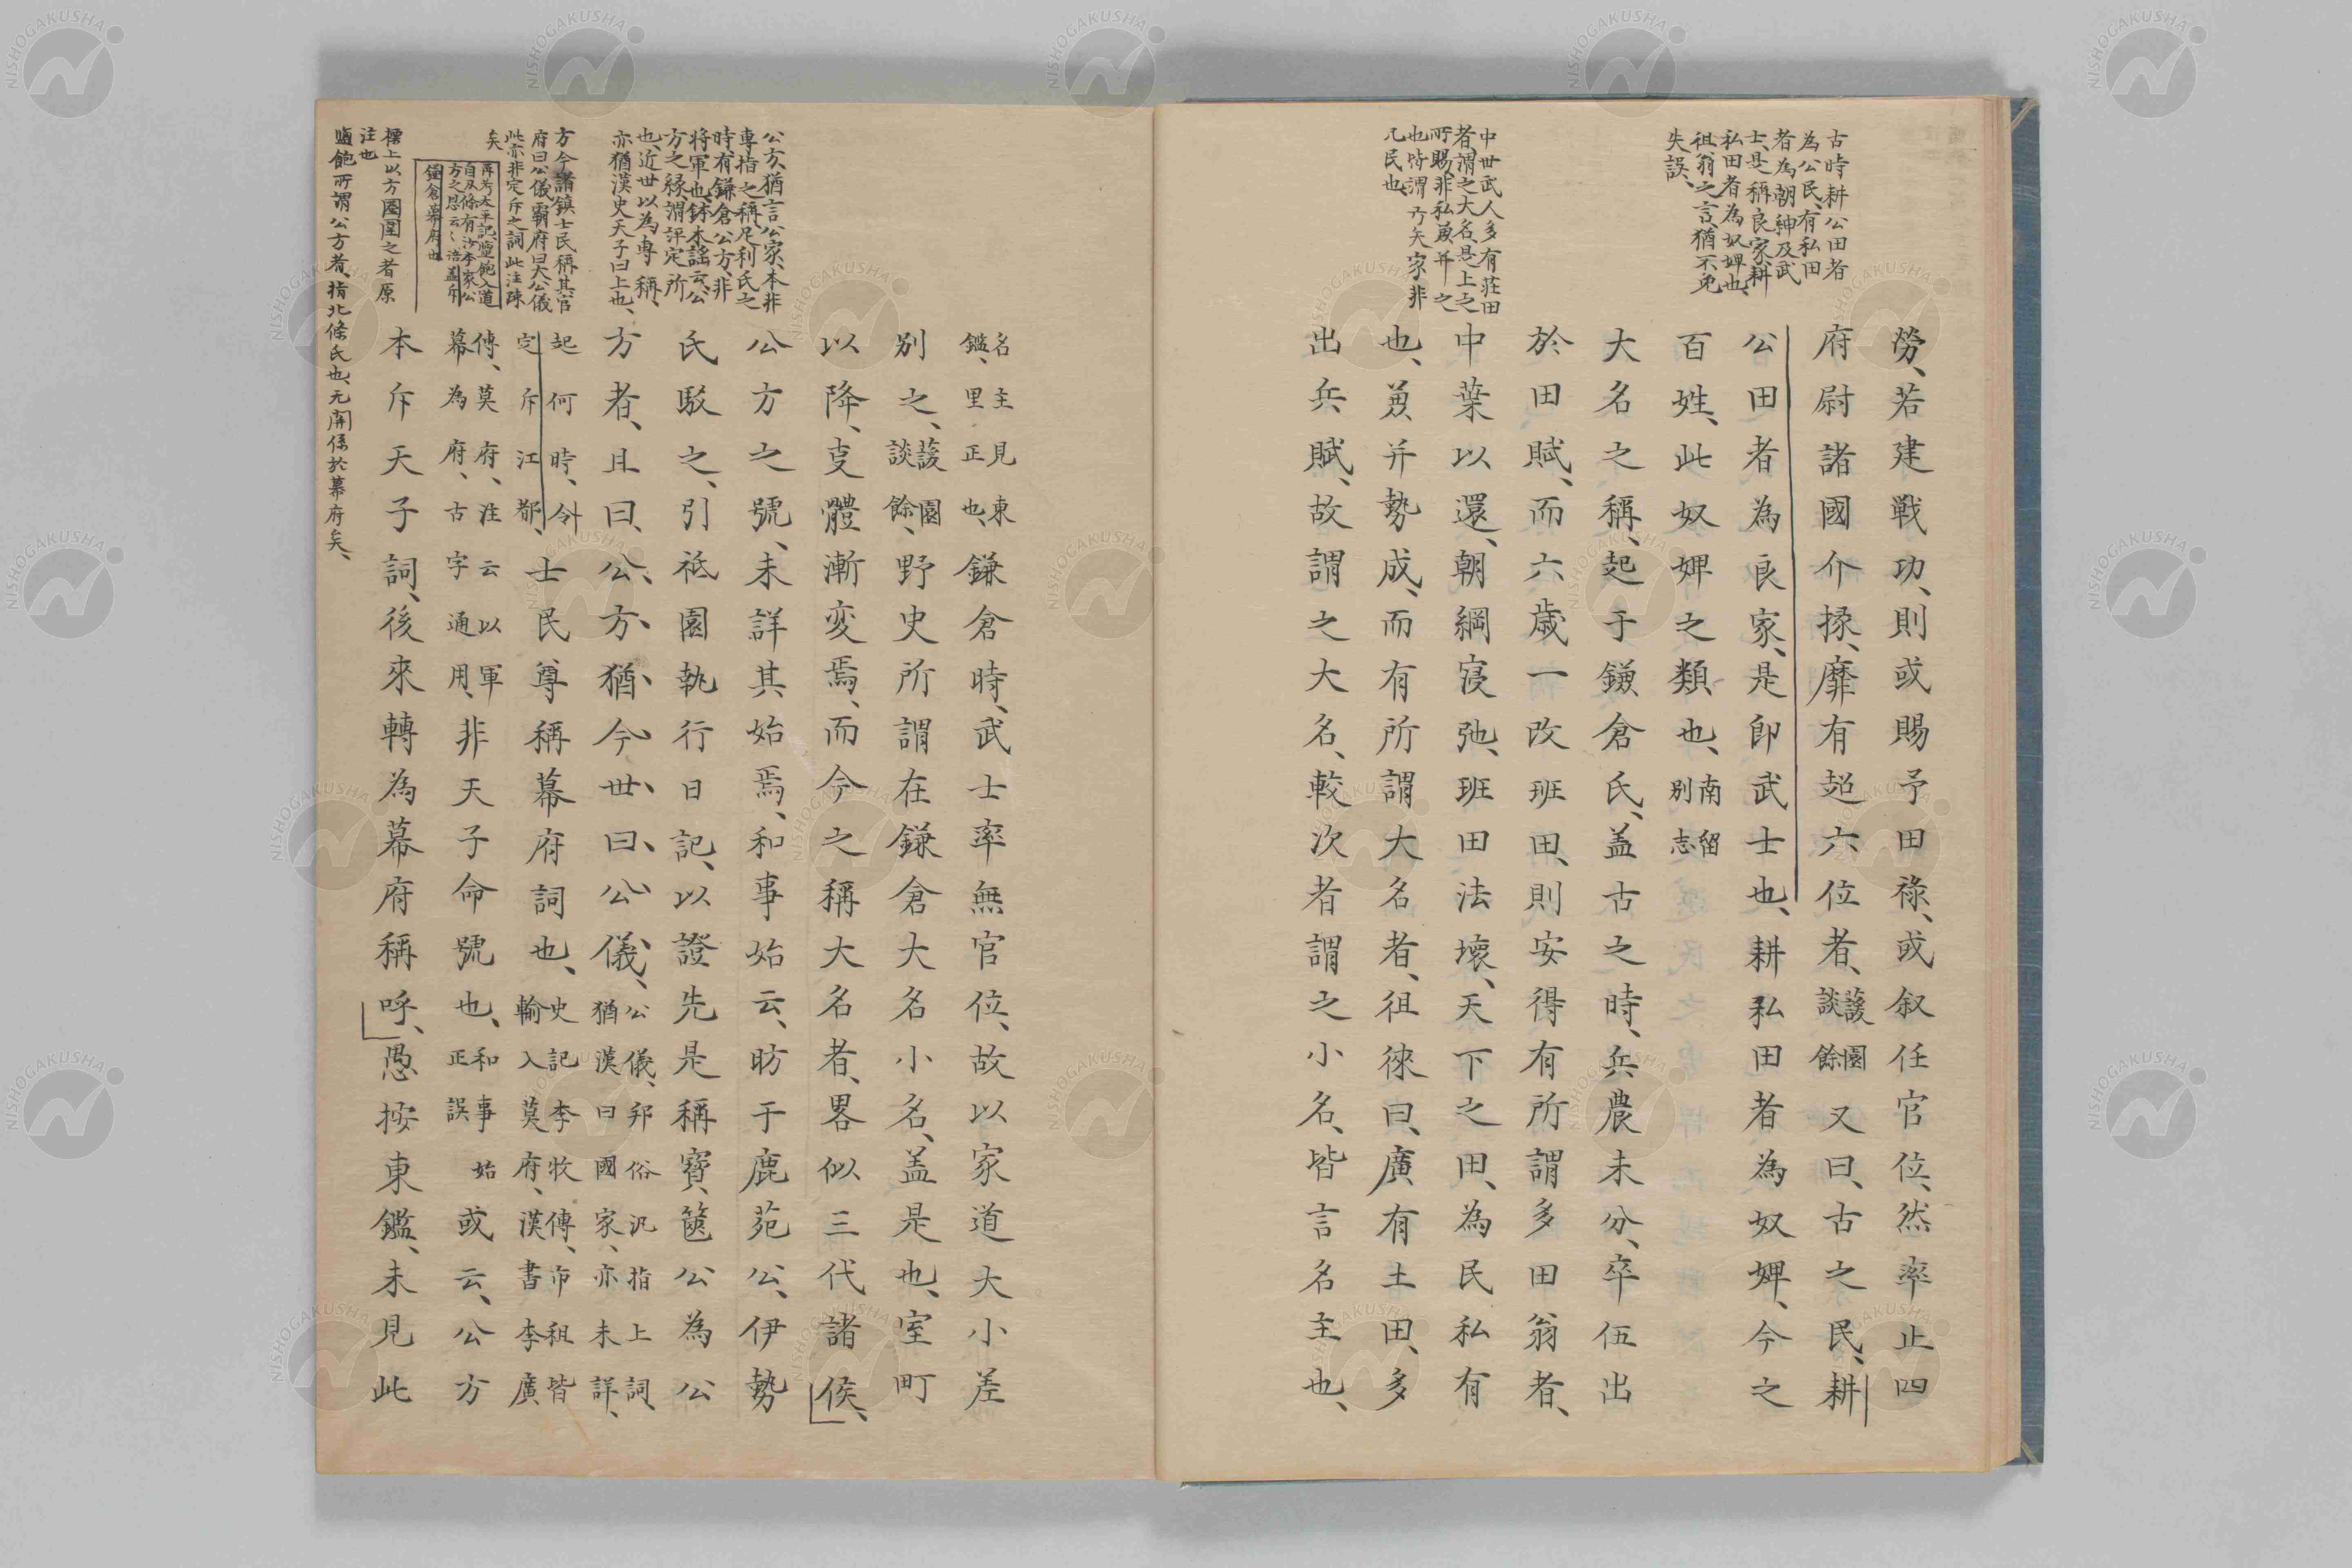 古時耕公田者
為公民、有私田
者為朝紳及武
士、是稱良家、耕
私田者為奴婢也、
祖翁之言、猶不免
失誤、
中世武人多有莊田
者、謂之大名、是上之
所賜、非私兼并之
也、皆謂兵家、非
凡民也、
勞、若建戰功、則或賜予田祿、或叙任官位、然率止四
府尉諸國介掾、靡有超六位者、
蘐園
談餘
又曰、古之民、耕
公田者為良家、是即武士也、耕私田者為奴婢、今之
百姓、此奴婢之類也、
南留
別志
大名之稱、起于鎌倉氏、盖古之時、兵農未分、卒伍出
於田賦、而六歲一改班田、則安得有所謂多田翁者、
中葉以還、朝綱寝弛、班田法壞、天下之田、為民私有
也、兼并勢成、而有所謂大名者、徂徠曰、廣有土田、多
出兵賦、故謂之大名、較次者謂之小名、皆言名主也、
名主見東
鑑、里正也、
鎌倉時、武士率無官位、故以家道大小差
別之、
蘐園
談餘、
野史所謂在鎌倉大名小名、盖是也、室町
以降、吏體漸変焉、而今之稱大名者、畧似三代諸侯、
公方之號、未詳其始焉、和事始云、昉于鹿苑公、伊勢
氏駁之、引祗園執行日記、以證先是稱寳篋公為公
方者、且曰、公方猶今世曰公儀、
公儀、邦俗汎指上詞、
猶漢曰國家、亦未詳、
起何時、今
定斥江都、
士民尊稱幕府詞也、
史記李牧傳、市租皆
輸入莫府、漢書李廣
傳、莫府、注云以軍
幕為府、古字通用、
非天子命號也、
和事始
正誤
或云、公方
本斥天子詞、後來轉為幕府稱呼、愚按東鑑、未見此
公方、猶言公家、本非
專指之稱、足利氏之
時、有鎌倉公方、非
將軍也、鉢木謡云、公
方之縁、謂評定所
也、近世以為專稱、
亦猶漢史天子曰上也、
方今諸鎮士民稱其官
府曰公儀、霸府曰大公儀
此亦非定斥之詞、此注疎
矣
再考太平記、塩飽入道
自及條有沙李家公
方之恩云々語、盖斥
鎌倉幕府也
標上以方圈圍之者原
注也
塩飽所謂公方者、指北條氏也、元關係於幕府矣、